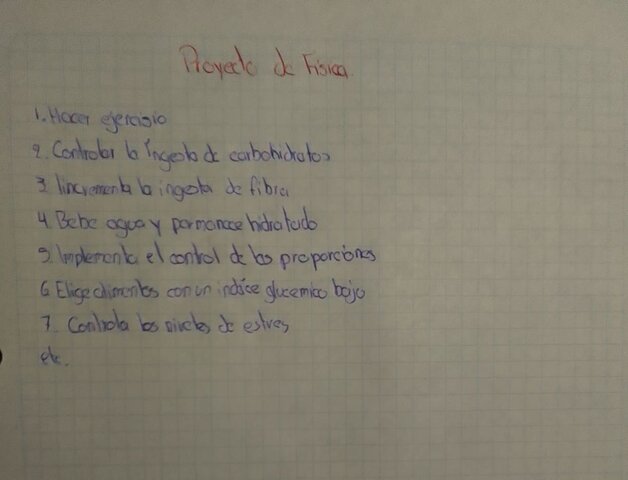 Proyecto de Fisica
1. Hacer ejercisio
2. Controlar la ingesta de carbohidratos
3. Iincrementa la ingesta de fibra
4. Bebe agua y permanece hidratado
5. Implementa el control de las proporciones
6. Elige alimentos con un indice glucemico bajo
7. Controla los niveles de estres
etc.